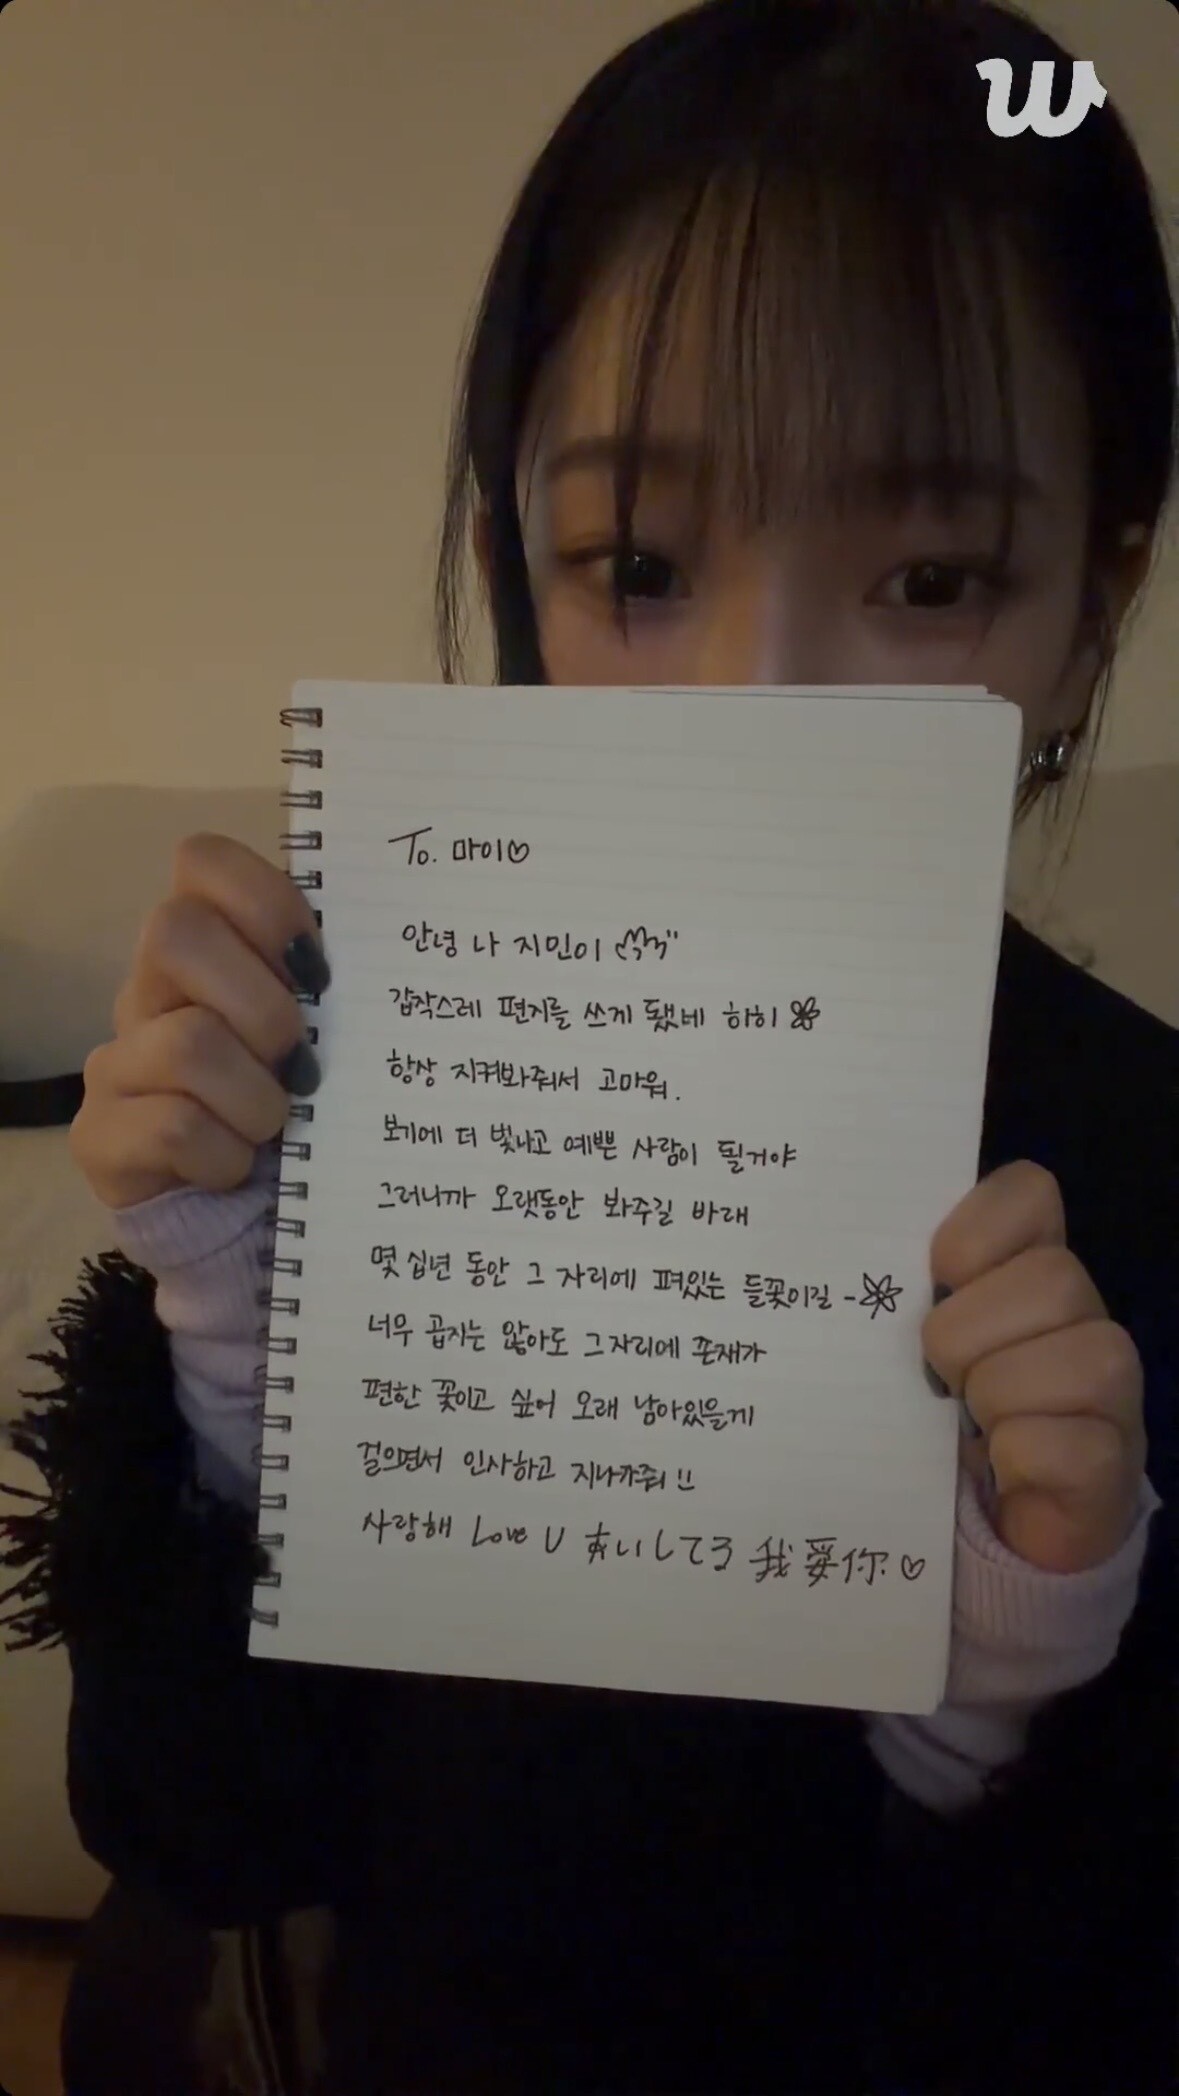 W
To. 마이♡
안녕 나 지민이
갑작스레 편지를 쓰게 됐네 히히
항상 지켜봐줘서 고마워.
보기에 더 빛나고 예쁜 사람이 될거야
그러니까 오랫동안 봐주길 바래
몇 십년 동안 그 자리에 펴있는 들꽃이길 -
너무 곱지는 않아도 그 자리에 존재가
편한 꽃이고 싶어 오래 남아있을게
걸으면서 인사하고 지나가줘!!
사랑해 Love U あいしてる 我爱你♡